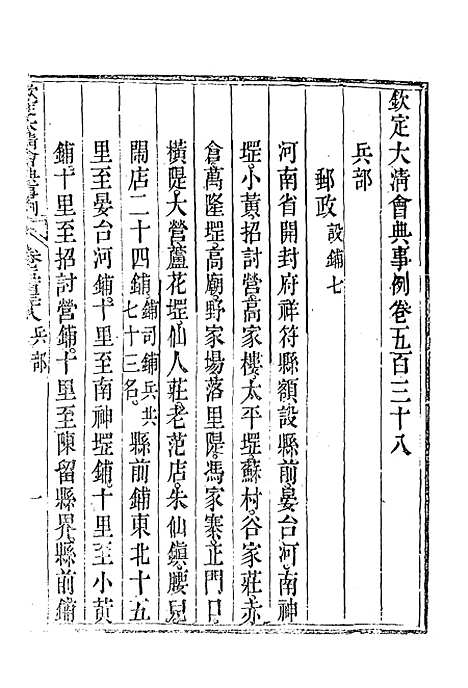 欽定大清會典事例卷五百三十八
兵部
郵政設鋪七
河南省開封府祥符縣額設縣前晏台河南神
堽小黃招討營高家樓太平堽蘇村谷家莊赤
倉萬隆堽高廟野家場落里隄馮家寨正門口
橫隄大營蘆花堽仙人莊老范店朱仙鎮腰兒
鬧店二十四鋪鋪司鋪兵共七十三名縣前鋪東北十五
里至晏台河鋪十里至南神堽鋪十里至小黃
鋪十里至招討營鋪十里至陳留縣界縣前鋪
欽定大清會典事例 卷五百三十八 兵部 一